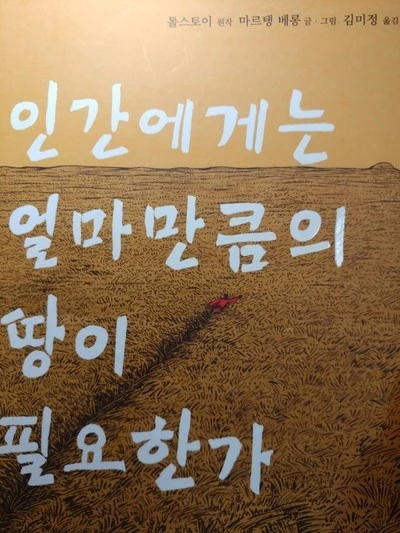 톨스토이 원작 마르탱 베롱 글·그림 김미정 옮김
인간에게는
얼마만큼의
땅이
필요한가